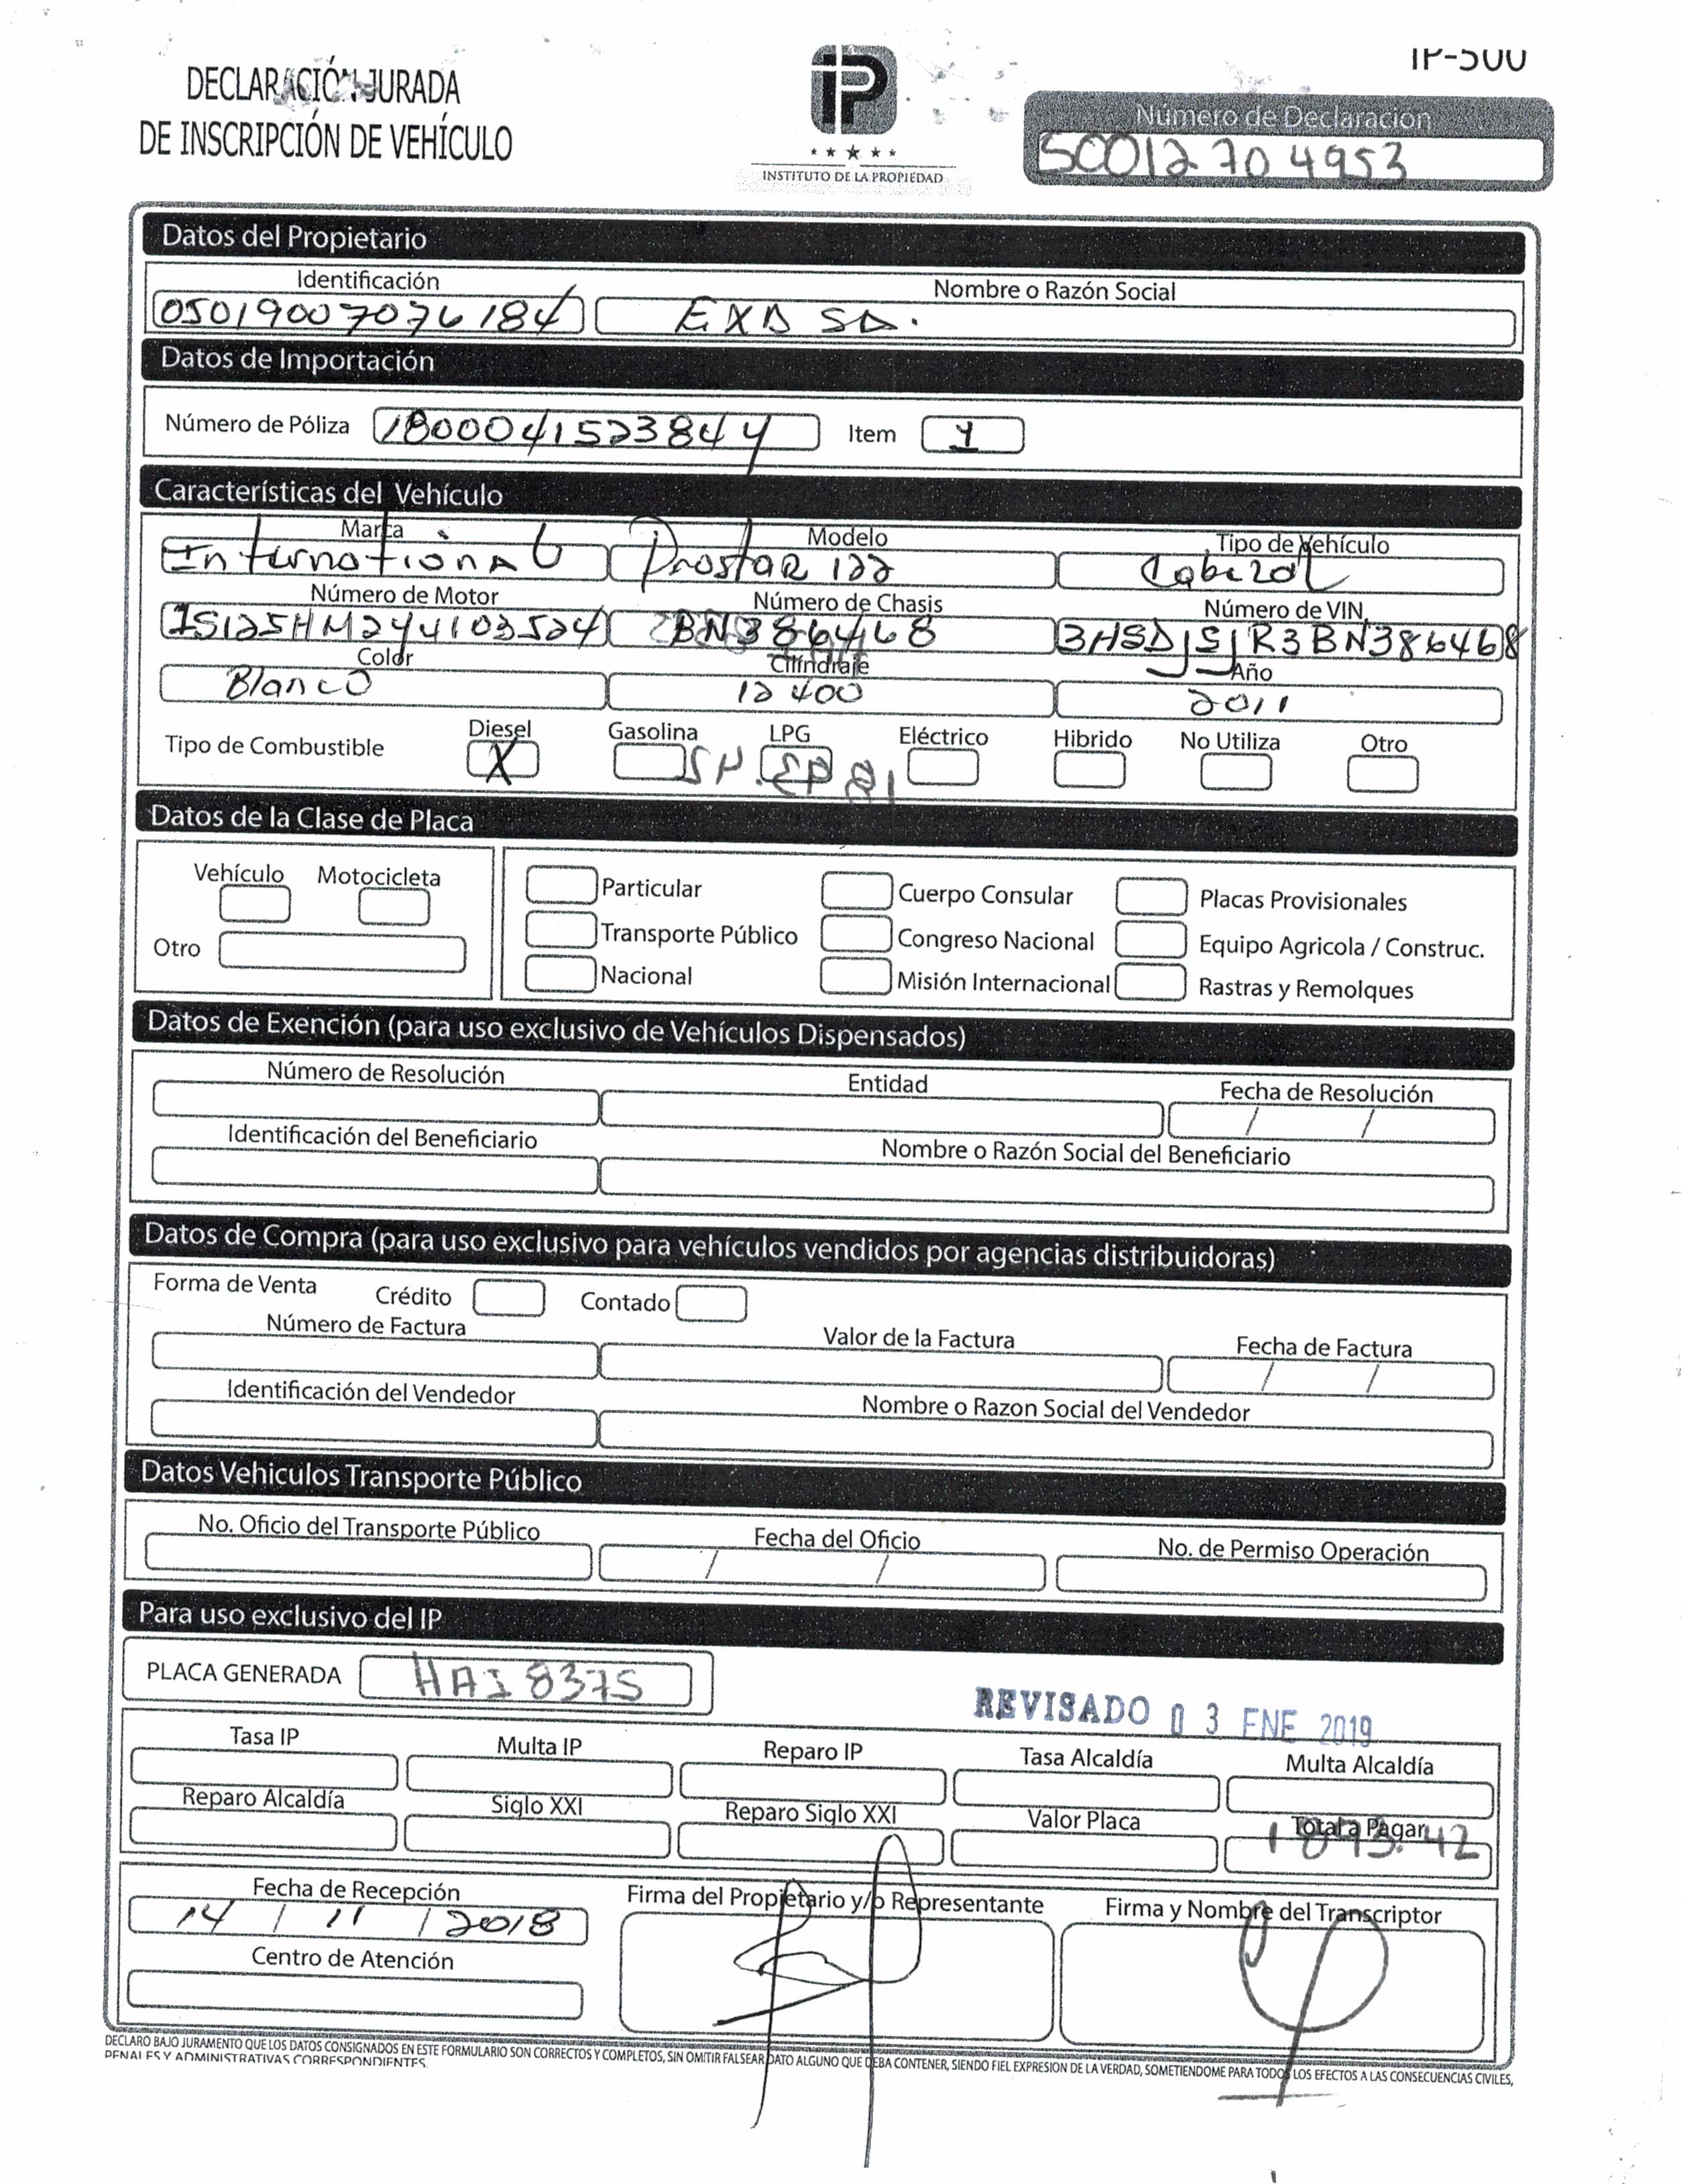 IP-500
DECLARACIÓN JURADA
DE INSCRIPCIÓN DE VEHÍCULO
iP
INSTITUTO DE LA PROPIEDAD
Número de Declaración
50012704953
Datos del Propietario
Identificación Nombre o Razón Social
05019007076184 EXD SA.
Datos de Importación
Número de Póliza 1800041523844 Item 1
Características del Vehículo
Marca Modelo Tipo de Vehículo
International Prostar 122 Cabezal
Número de Motor Número de Chasis Número de VIN
BN386468 3HSDJSJR3BN386468
Color Cilíndraje Año
Blanco 12400 2011
Tipo de Combustible Diesel X Gasolina LPG Eléctrico Hibrido No Utiliza Otro
Datos de la Clase de Placa
Vehículo Motocicleta
Otro
Particular Cuerpo Consular Placas Provisionales
Transporte Público Congreso Nacional Equipo Agricola / Construc.
Nacional Misión Internacional Rastras y Remolques
Datos de Exención (para uso exclusivo de Vehículos Dispensados)
Número de Resolución Entidad Fecha de Resolución
/ /
Identificación del Beneficiario Nombre o Razón Social del Beneficiario
Datos de Compra (para uso exclusivo para vehículos vendidos por agencias distribuidoras)
Forma de Venta Crédito Contado
Número de Factura Valor de la Factura Fecha de Factura
/ /
Identificación del Vendedor Nombre o Razon Social del Vendedor
Datos Vehiculos Transporte Público
No. Oficio del Transporte Público Fecha del Oficio No. de Permiso Operación
/ /
Para uso exclusivo del IP
PLACA GENERADA HAI 8375
REVISADO 03 ENE 2019
Tasa IP Multa IP Reparo IP Tasa Alcaldía Multa Alcaldía
Reparo Alcaldía Siglo XXI Reparo Siglo XXI Valor Placa Total a Pagar
1893.42
Fecha de Recepción Firma del Propietario y/o Representante Firma y Nombre del Transcriptor
14 / 11 / 2018
Centro de Atención
DECLARO BAJO JURAMENTO QUE LOS DATOS CONSIGNADOS EN ESTE FORMULARIO SON CORRECTOS Y COMPLETOS, SIN OMITIR FALSEAR DATO ALGUNO QUE DEBA CONTENER, SIENDO FIEL EXPRESION DE LA VERDAD, SOMETIENDOME PARA TODOS LOS EFECTOS A LAS CONSECUENCIAS CIVILES,
PENALES Y ADMINISTRATIVAS CORRESPONDIENTES.